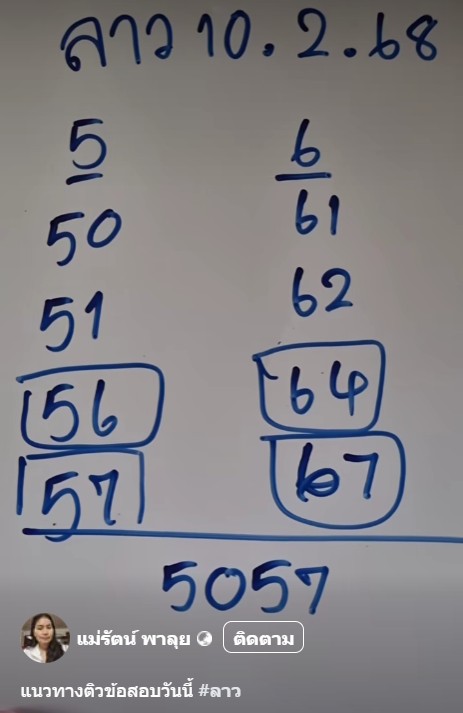 ลาว 10.2.68
5 6
50 61
51 62
56 64
57 67
5057
แม่รัตน์ พาลุย ติดตาม
แนวทางติวข้อสอบวันนี้ #ลาว